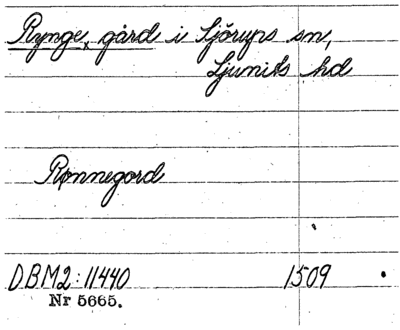 Rynge, gård i Sjörups sn,
Ljunits hd
Rønnegord
DBM2:11440 1509
Nr 5665.